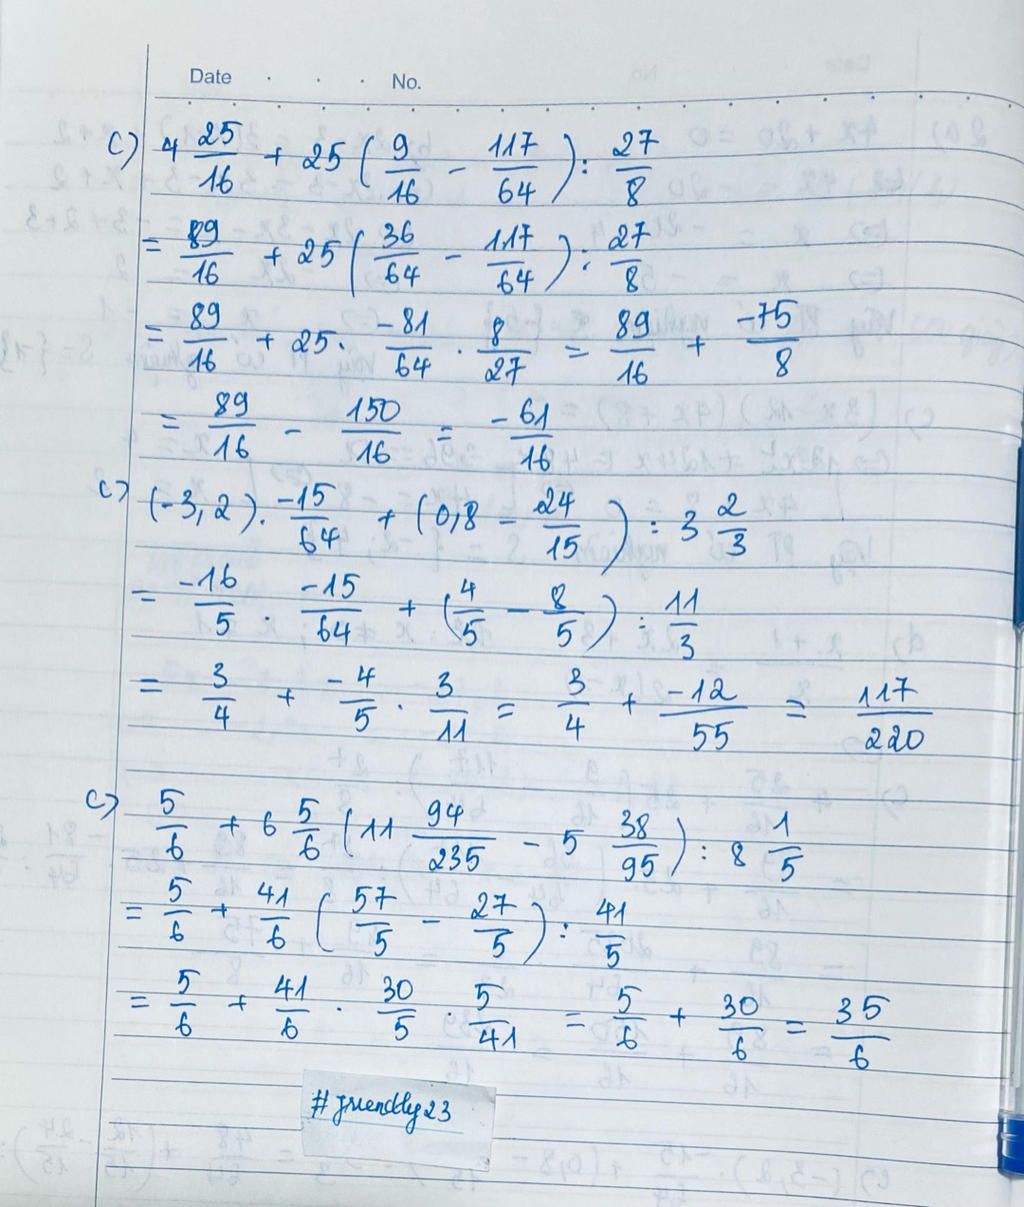 Date . . . No.
c) 4 25/16 + 25 ( 9/16 - 117/64 ) : 27/8
= 89/16 + 25 ( 36/64 - 117/64 ) : 27/8
= 89/16 + 25 . -81/64 . 8/27 = 89/16 + -75/8
= 89/16 - 150/16 = -61/16
c) (-3,2) . -15/64 + (0,8 - 24/15 ) : 3 2/3
= -16/5 . -15/64 + ( 4/5 - 8/5 ) : 11/3
= 3/4 + -4/5 . 3/11 = 3/4 + -12/55 = 117/220
c) 5/6 + 6 5/6 ( 11 94/235 - 5 38/95 ) : 8 1/5
= 5/6 + 41/6 ( 57/5 - 27/5 ) : 41/5
= 5/6 + 41/6 . 30/5 . 5/41 = 5/6 + 30/6 = 35/6
#friendly23